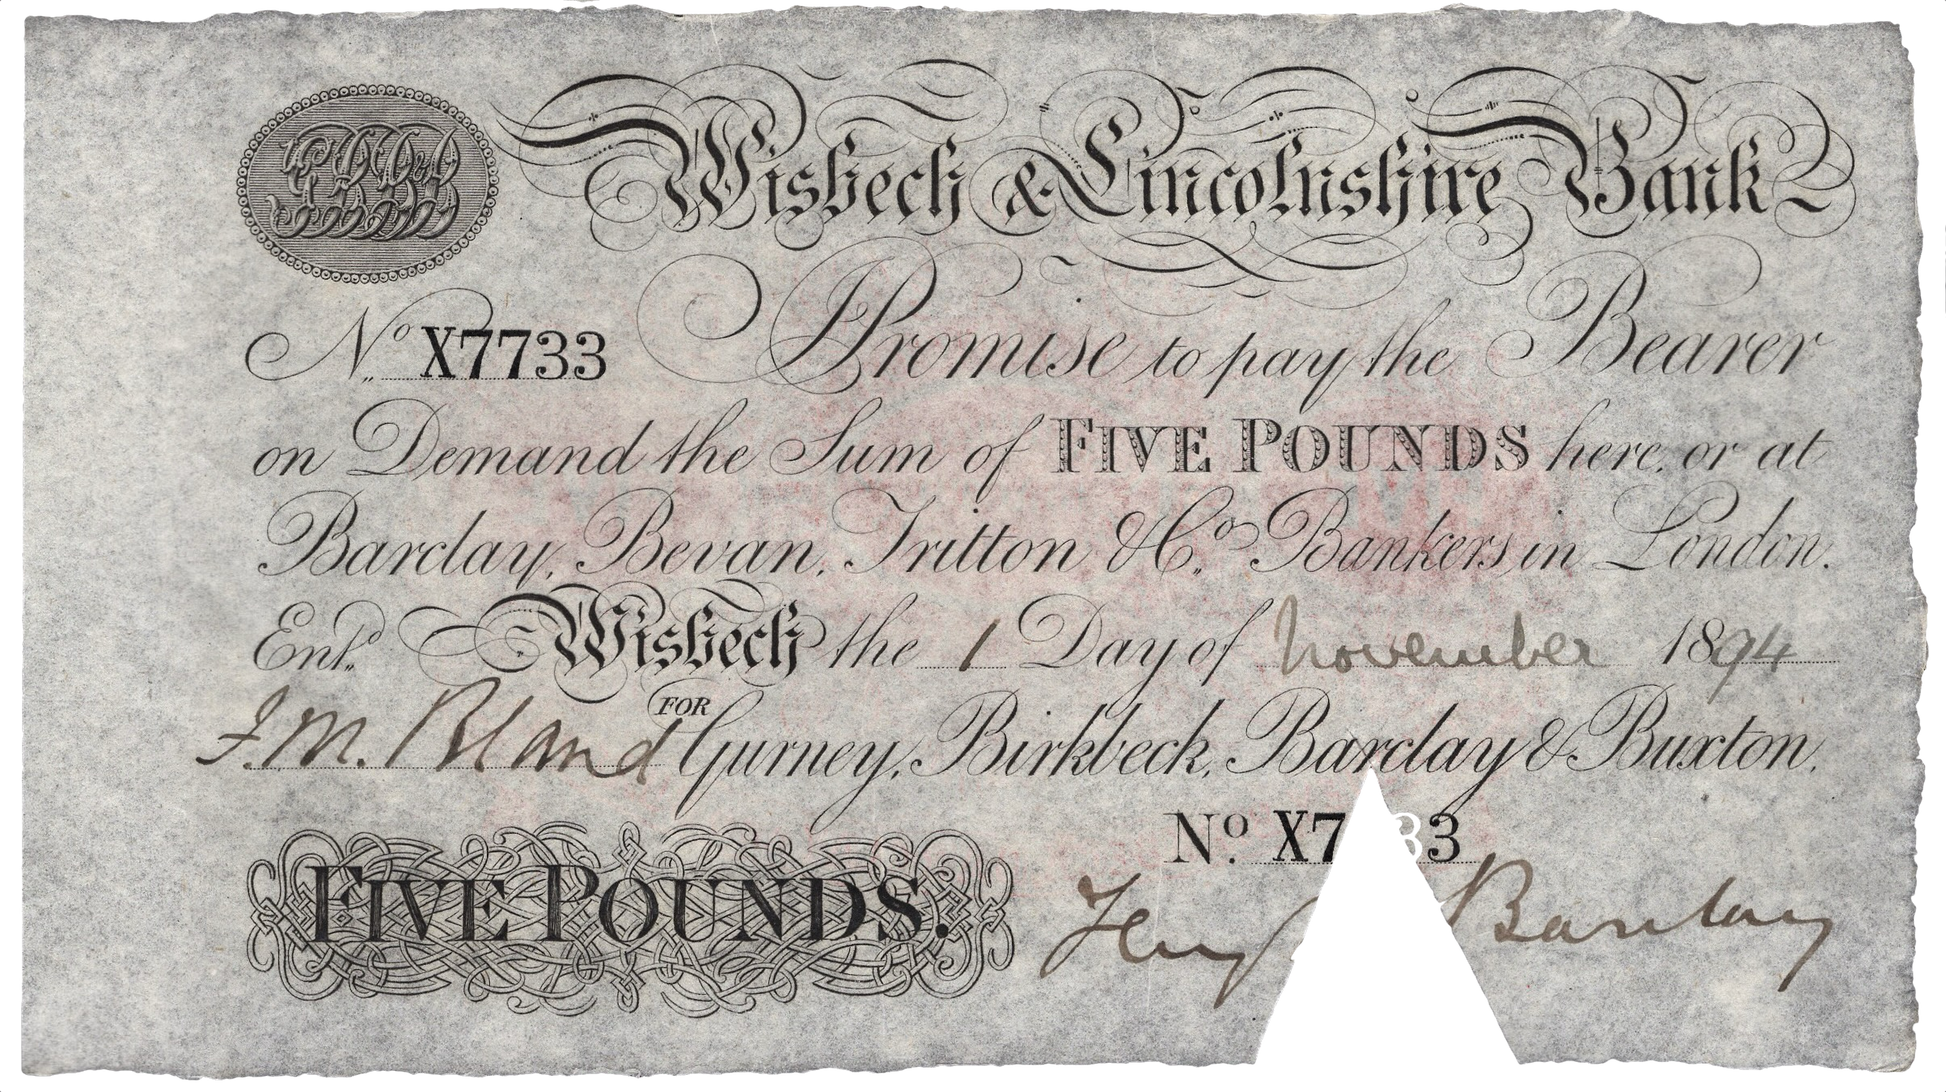 Wisbech & Lincolnshire Bank
No X7733 I Promise to pay the Bearer
on Demand the Sum of FIVE POUNDS here, or at
Barclay, Bevan, Tritton & Co. Bankers in London.
Entd. Wisbech the 1 Day of November 1894
FOR
J. M. Bland Gurney, Birkbeck, Barclay & Buxton.
No. X7 33
FIVE POUNDS.
Barclay